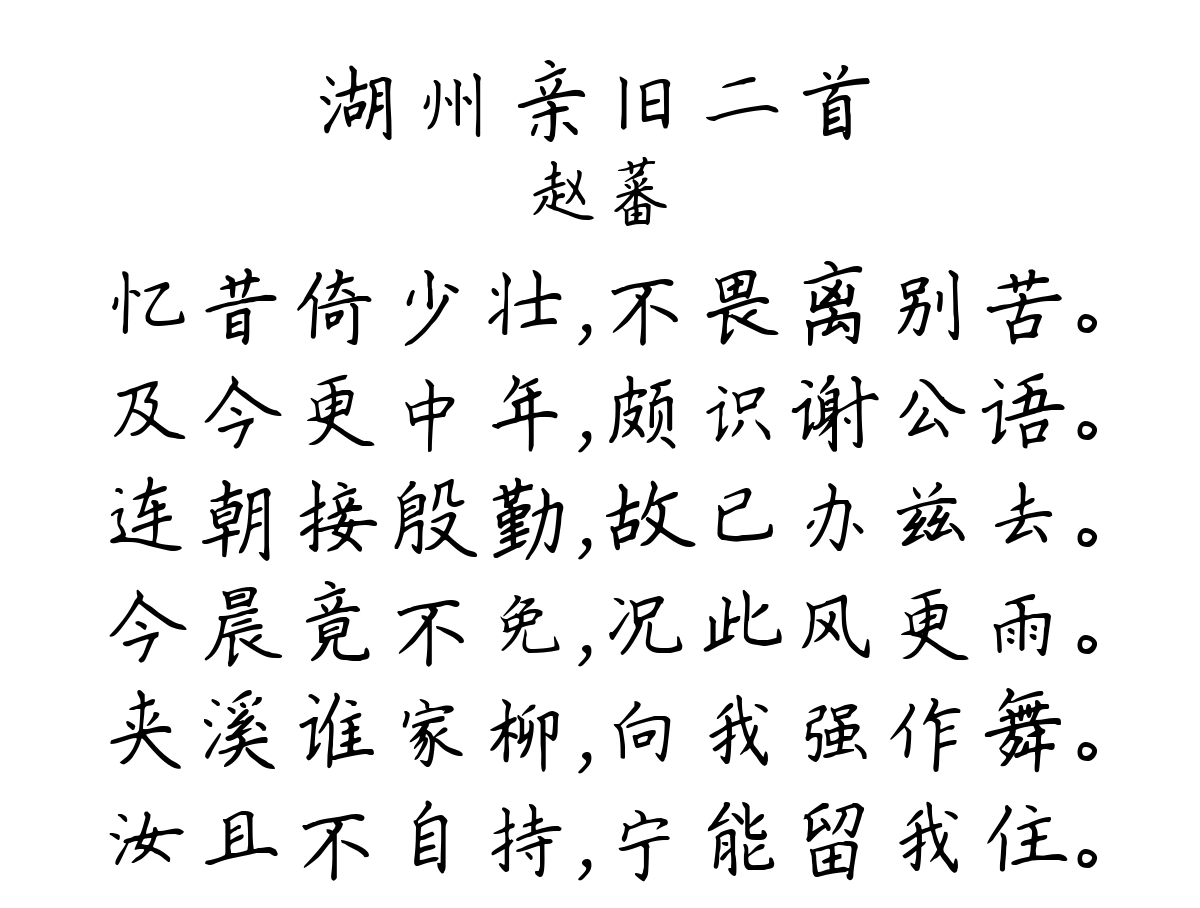 湖州亲旧二首
赵蕃
忆昔倚少壮,不畏离别苦。
及今更中年,颇识谢公语。
连朝接殷勤,故已办兹去。
今晨竟不免,况此风更雨。
夹溪谁家柳,向我强作舞。
汝且不自持,宁能留我住。